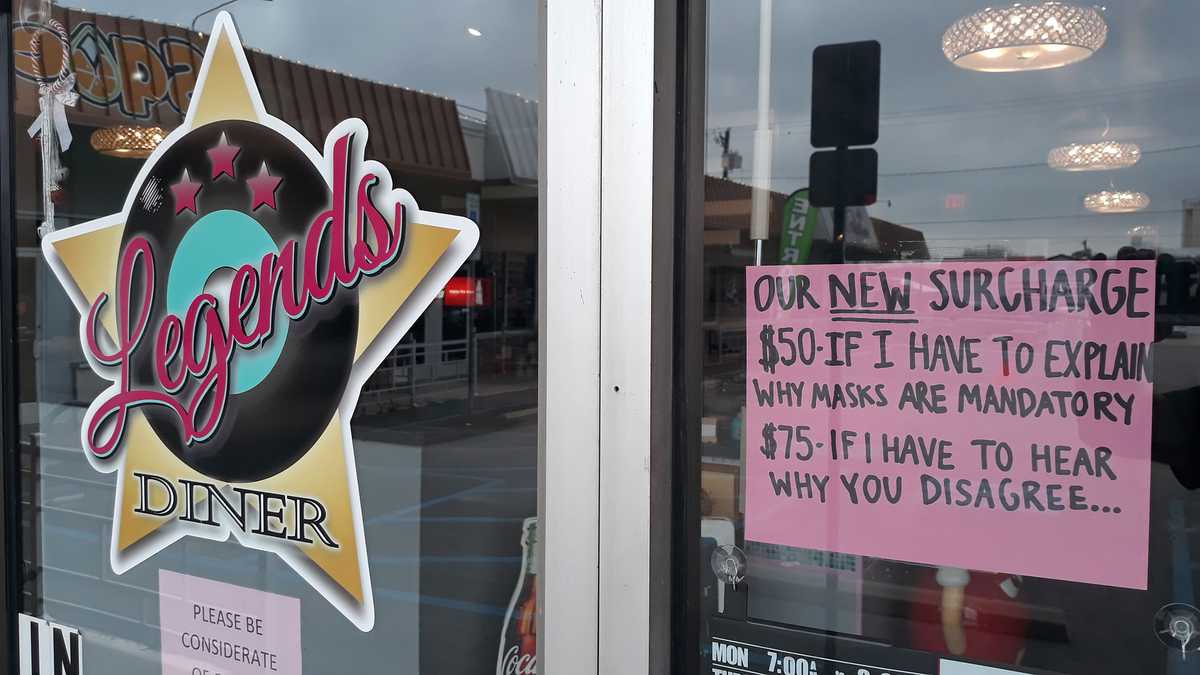 Legends
DINER
PLEASE BE
CONSIDERATE
IN
Coca
ENTR
OUR NEW SURCHARGE
$50-IF I HAVE TO EXPLAIN
WHY MASKS ARE MANDATORY
$75-IF I HAVE TO HEAR
WHY YOU DISAGREE...
MON 7:00A